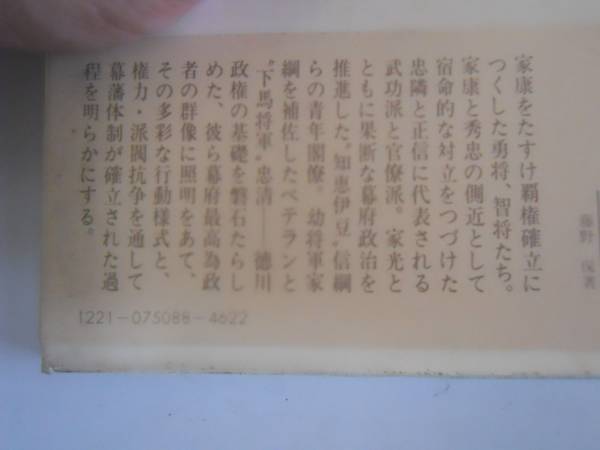 藤野 保著
家康をたすけ覇権確立に
つくした勇将、智将たち。
家康と秀忠の側近として
宿命的な対立をつづけた
忠隣と正信に代表される
武功派と官僚派。家光と
ともに果断な幕府政治を
推進した〝知恵伊豆〟信綱
らの青年閣僚。幼将軍家
綱を補佐したベテランと
〝下馬将軍〟忠清――徳川
政権の基礎を磐石たらし
めた、彼ら幕府最高為政
者の群像に照明をあて、
その多彩な行動様式と、
権力・派閥抗争を通して
幕藩体制が確立された過
程を明らかにする。
1221-075088-4622